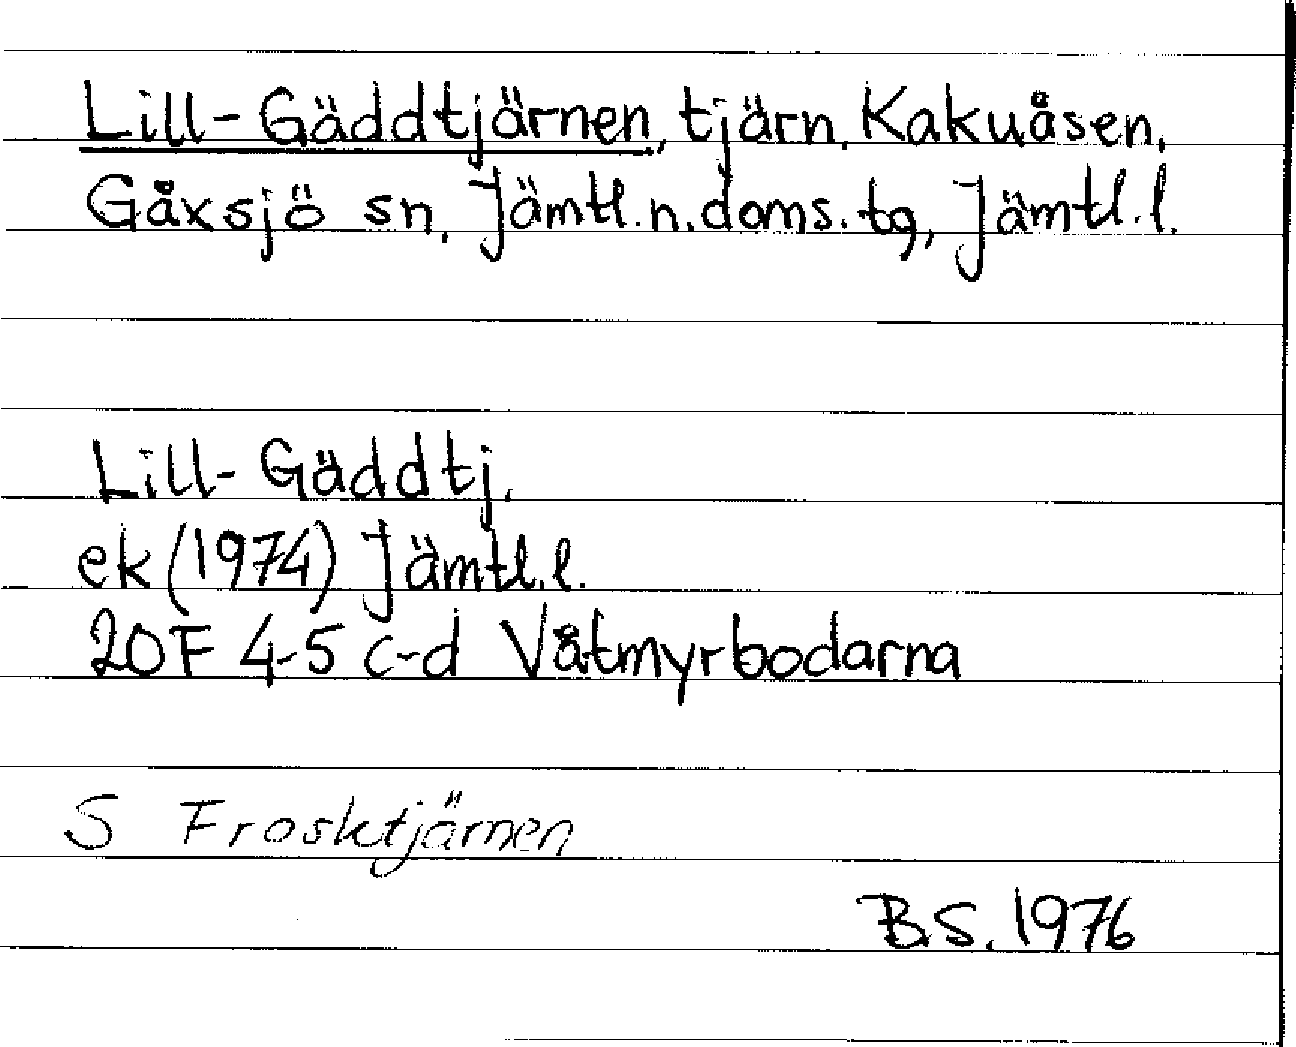 Lill-Gäddtjärnen, tjärn, Kakuåsen,
Gåxsjö sn, Jämtl.n.doms.tg, Jämtl.l.
Lill-Gäddtj.
ek (1974) Jämtl.l.
20F 4-5 c-d Våtmyrbodarna
S Frosktjärnen
B.S. 1976